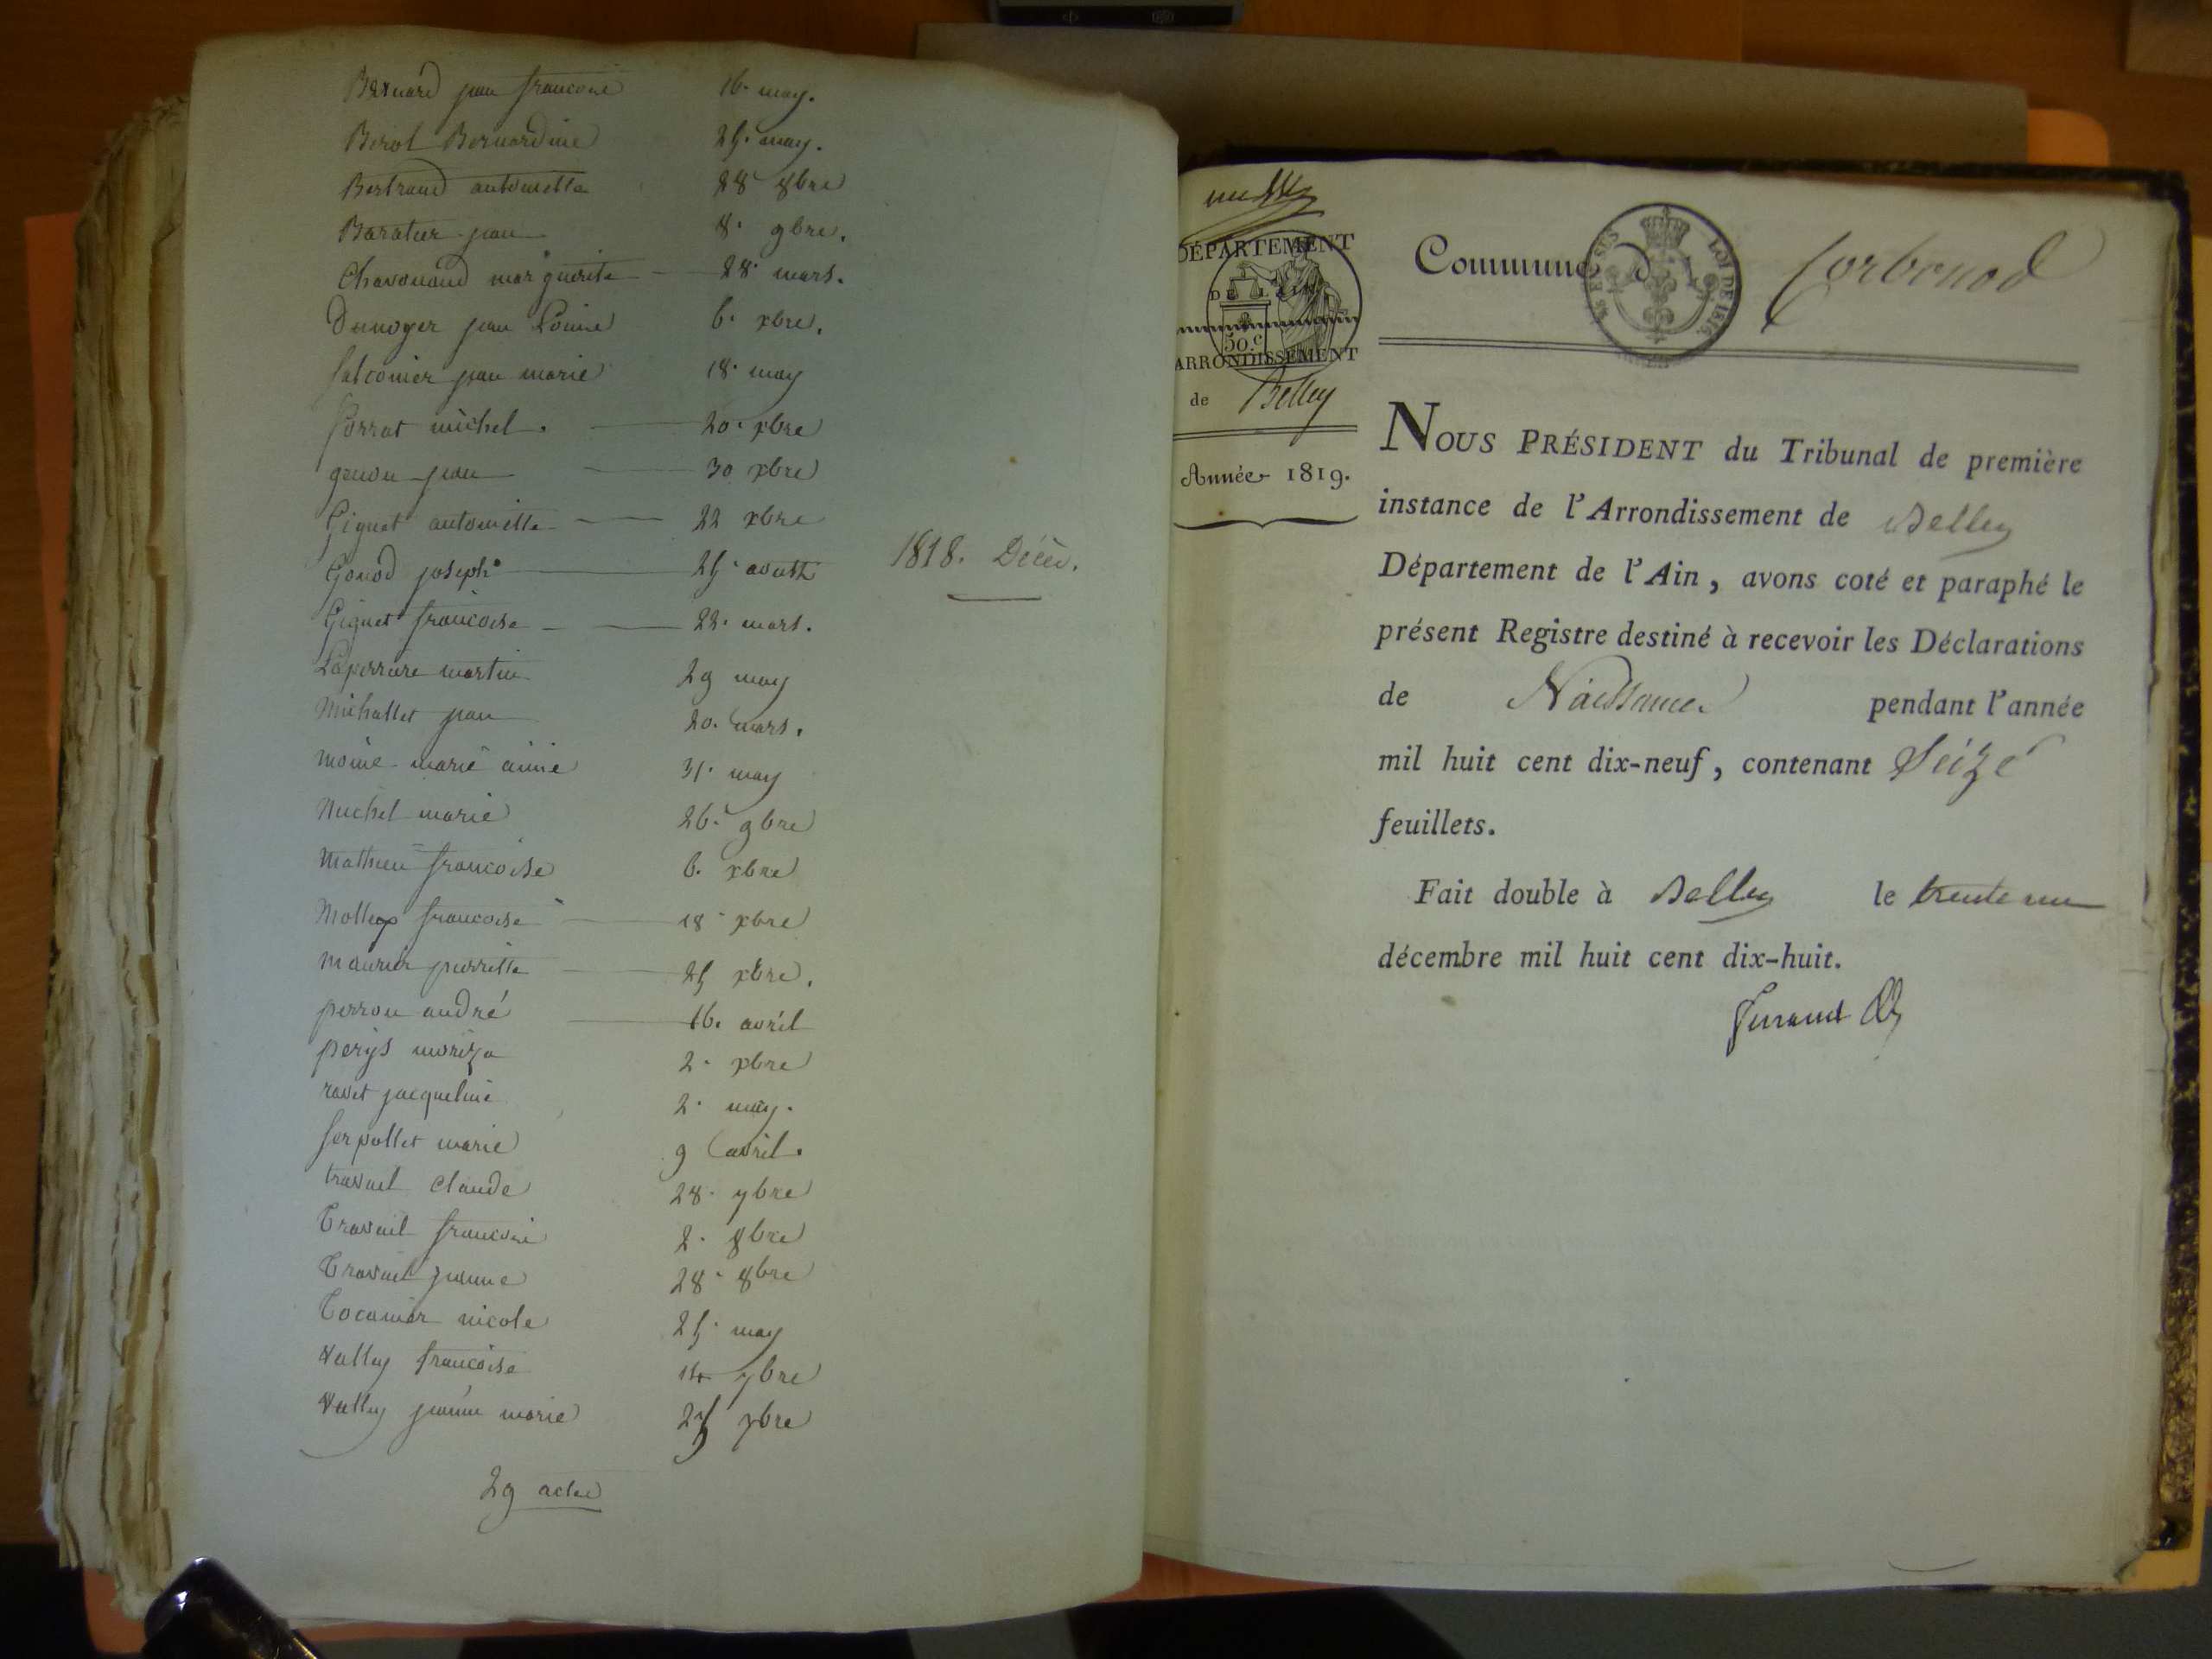 Bernard jean francois 16. may.
Berot Bernardine 25. may.
Bertrand antoinette 28 8bre
Baratier jean 8. 9bre.
Chavonand marguerite 28. mars.
Dunoyer jean Louise 6. xbre.
falconier jean marie 18. may
forrat michel. 20. xbre
genou jean 30 xbre
Giguet antoinette 22 xbre
Gonod joseph 25. aoust
1818. Décès.
Giguet francoise 22. mars.
Laperrare martin 29 may
Michallet jean 20. mars.
moine marie aime 31. may
Michel marie 26. 9bre
Mathieu francoise 6. xbre
Mollex francoise 18. xbre
maurier pierrette 25 xbre.
perron andré 16. avril
perys moriza 2. xbre
ravet jacqueline 2. may.
serpollet marie 9 avril.
travail Claude 28. 7bre
Travail francois 2. 8bre
Travail jeanne 28. 8bre
Tocanier nicole 25. may
Vallay francoise 14 7bre
Vallay jeanne marie 25 xbre
29 actes
DÉPARTEMENT
DE L'AIN.
50.c
ARRONDISSEMENT
de Belley
Année 1819.
Commune d Corbonod
LOI DE 1816.
NOUS PRÉSIDENT du Tribunal de première
instance de l'Arrondissement de Belley
Département de l'Ain, avons coté et paraphé le
présent Registre destiné à recevoir les Déclarations
de Naissance pendant l'année
mil huit cent dix-neuf, contenant Seize
feuillets.
Fait double à Belley le trente un
décembre mil huit cent dix-huit.